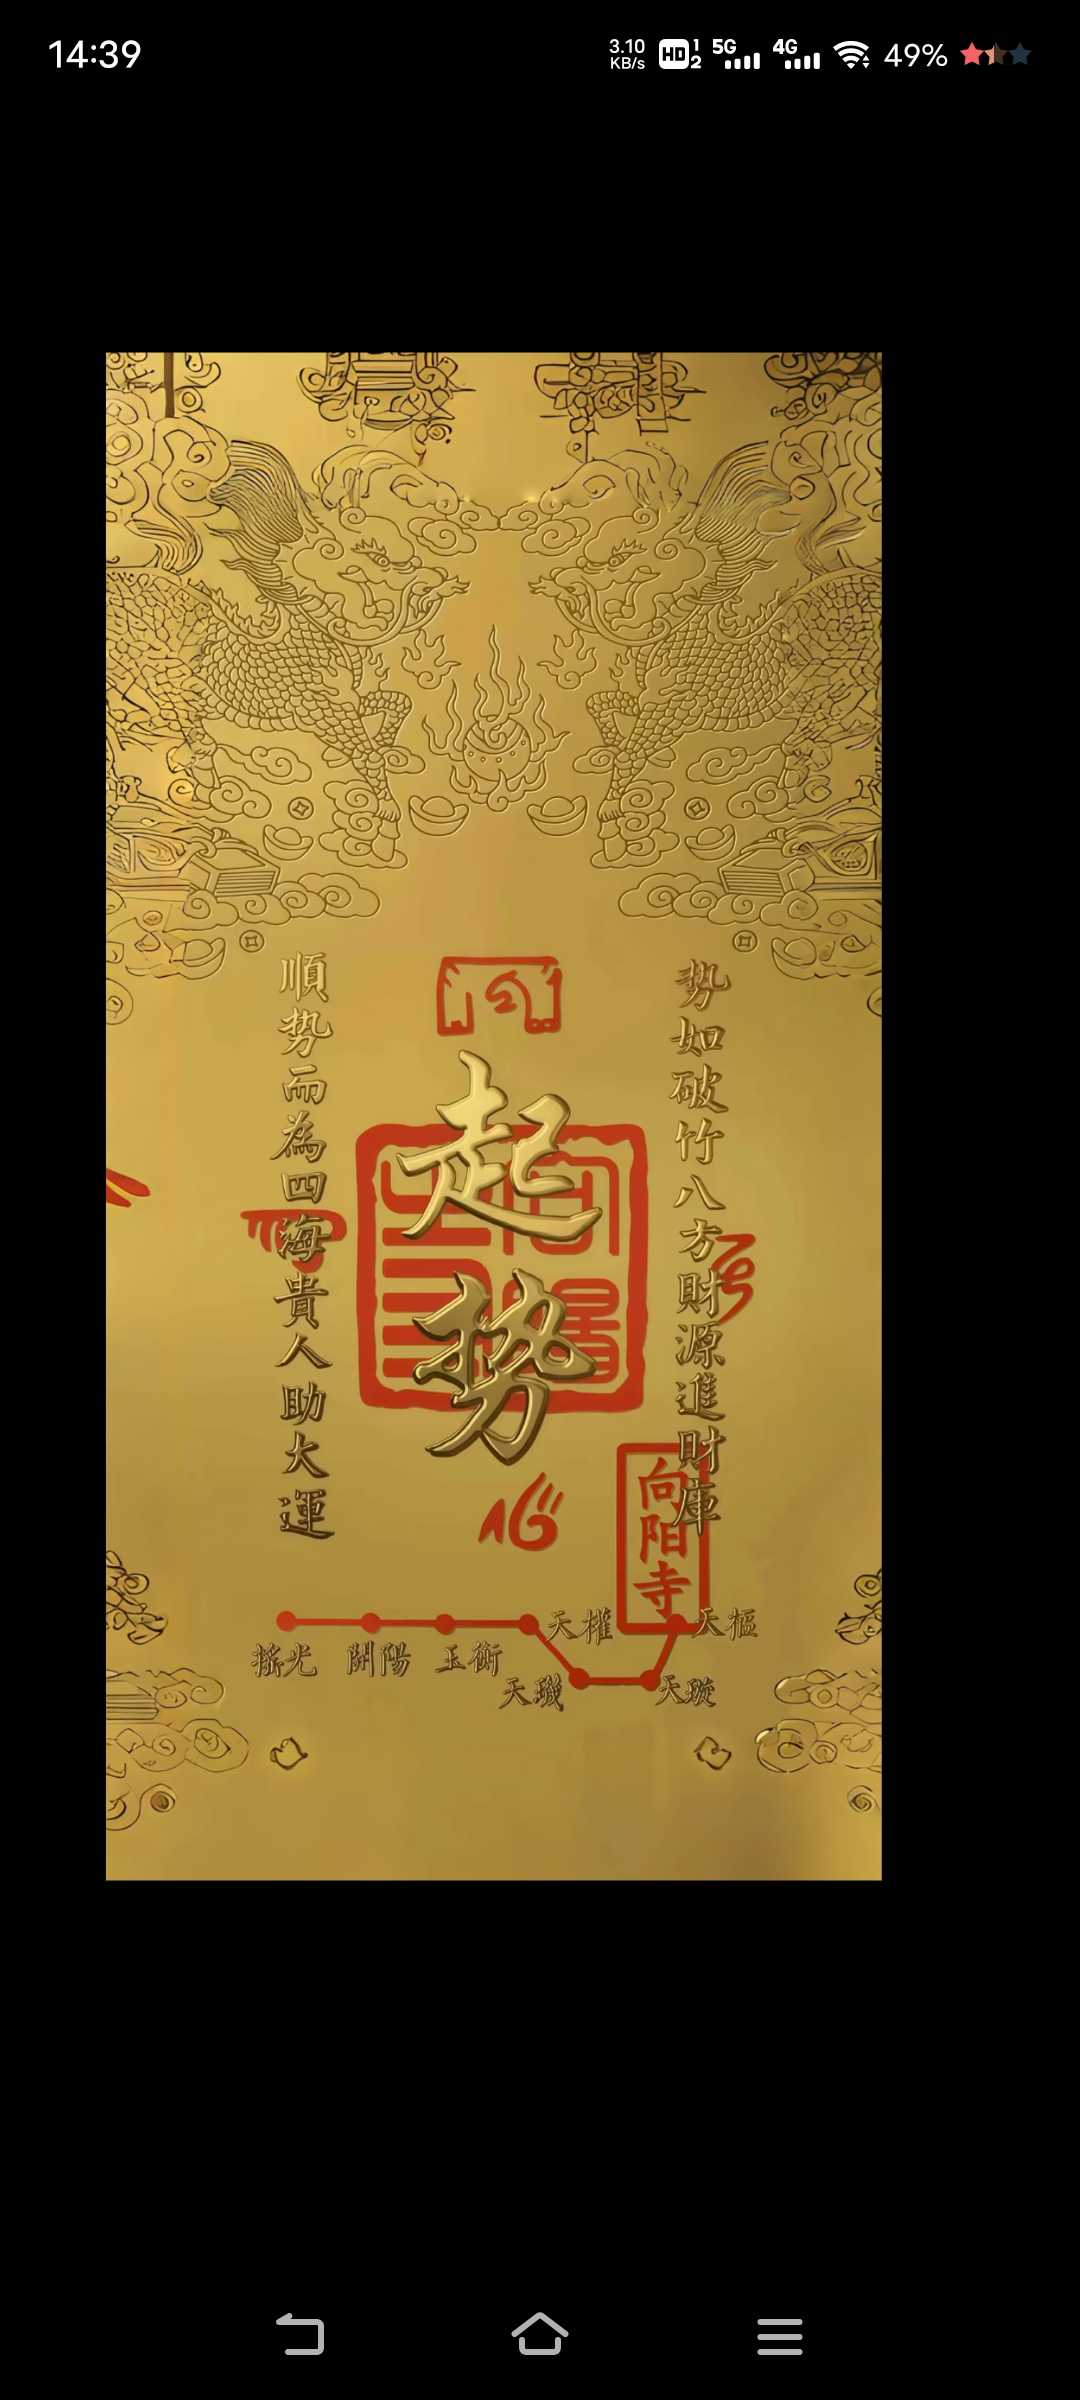 14:39
3.10 KB/s HD 1 2 5G 4G 49%
勢如破竹八方財源進財庫
起勢
順势而為四海貴人助大運
心
向阳寺
天權
天樞
搖光 開陽 玉衡
天璣
天璇